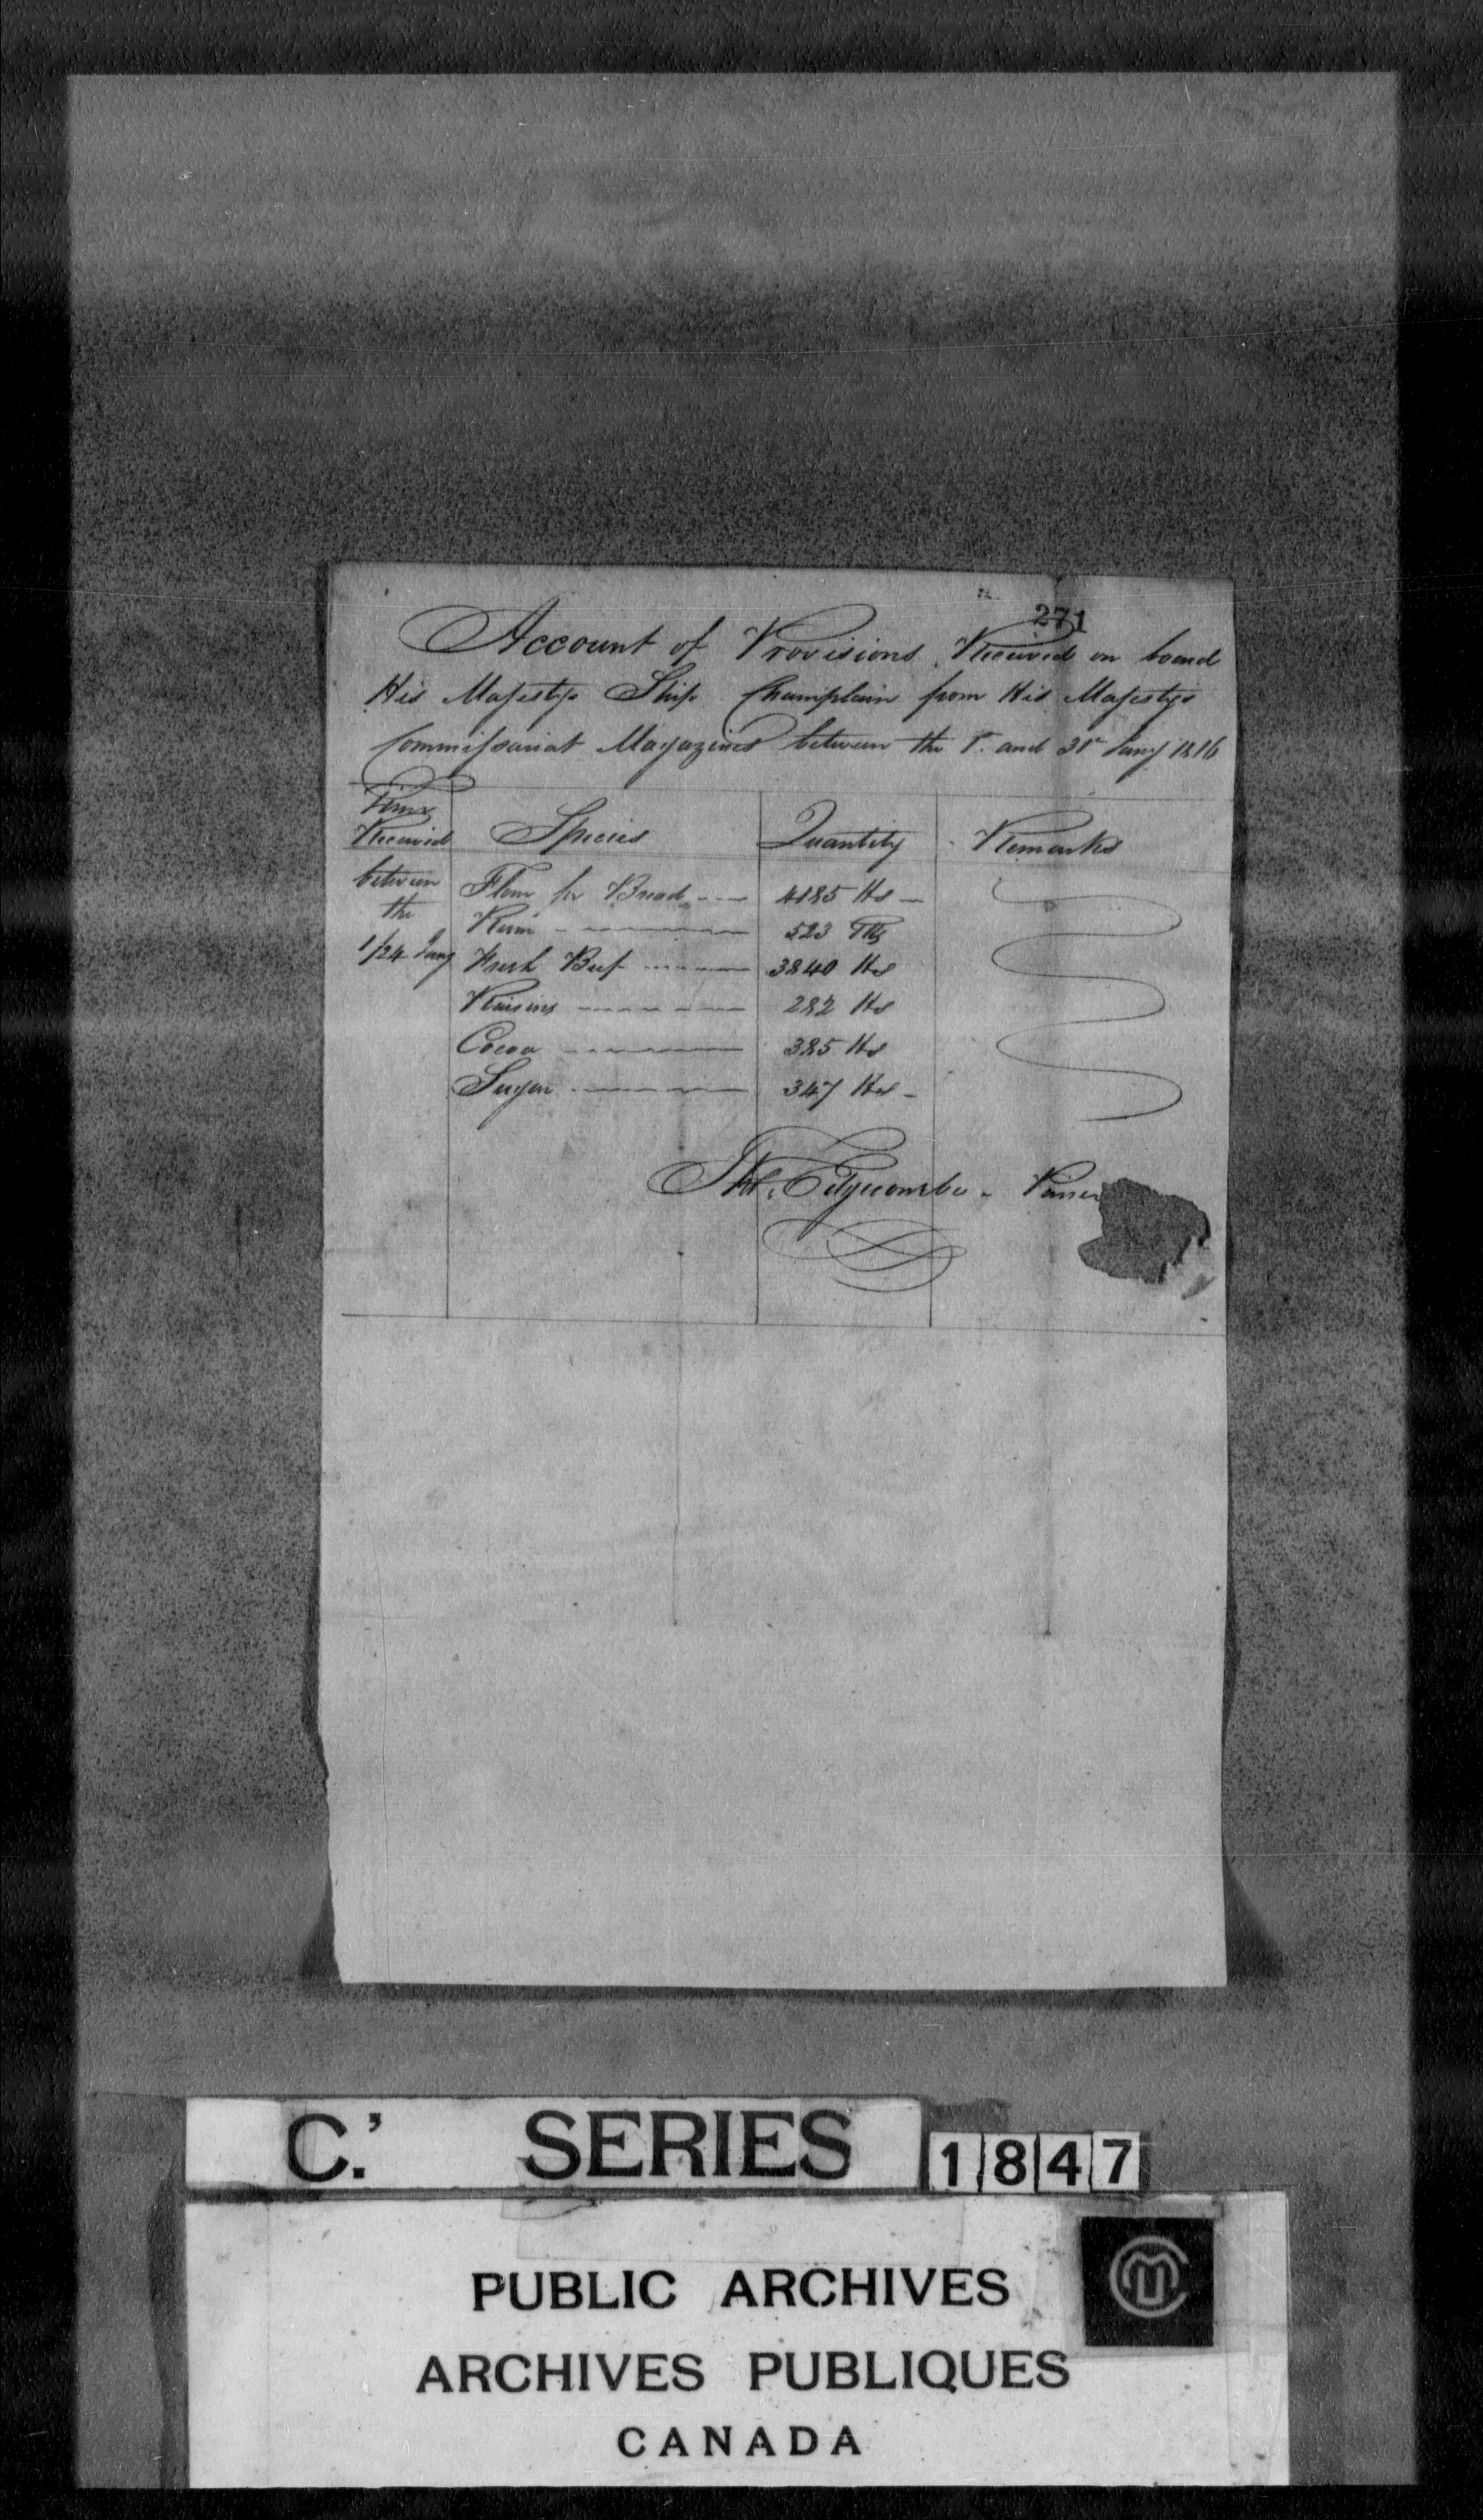 271
Account of Provisions Received on board
His Majestys Ship Champlain from His Majestys
Commissariat Magazines between the 1st. and 31st Jany 1816
Time
Received Species Quantity Remarks
between Flour for Bread 4185 lbs
the Rum 523 Pts
1/24 Jany Fresh Beef 3840 lbs
Raisins 282 lbs
Cocoa 385 lbs
Sugar 347 lbs
Edgecombe Purser
C. SERIES 1847
PUBLIC ARCHIVES
ARCHIVES PUBLIQUES
CANADA